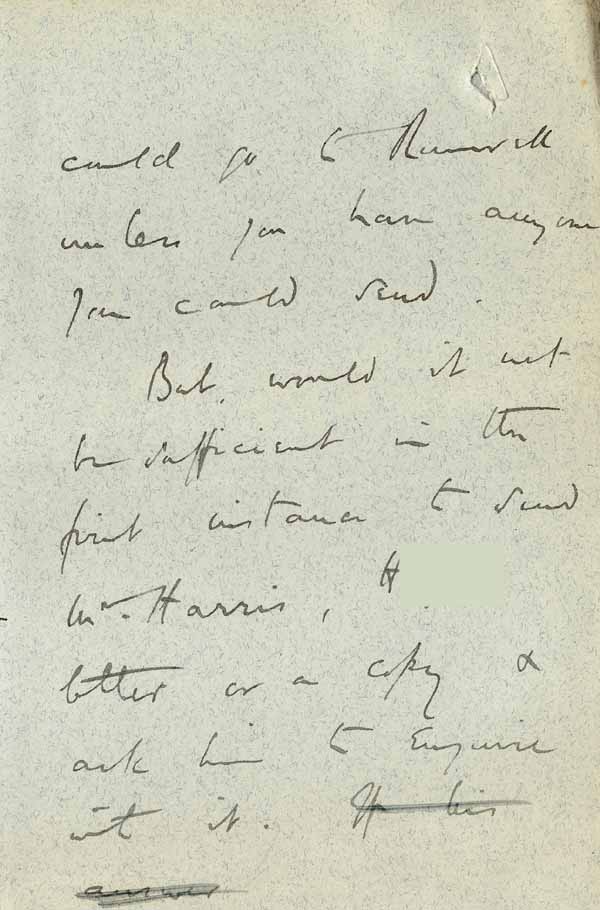 could go to Runwell
unless you have anyone
you could send.
But, would it not
be sufficient in the
first instance to send
Mr. Harris, H
letter or a copy &
ask him to enquire
into it. If his
answer